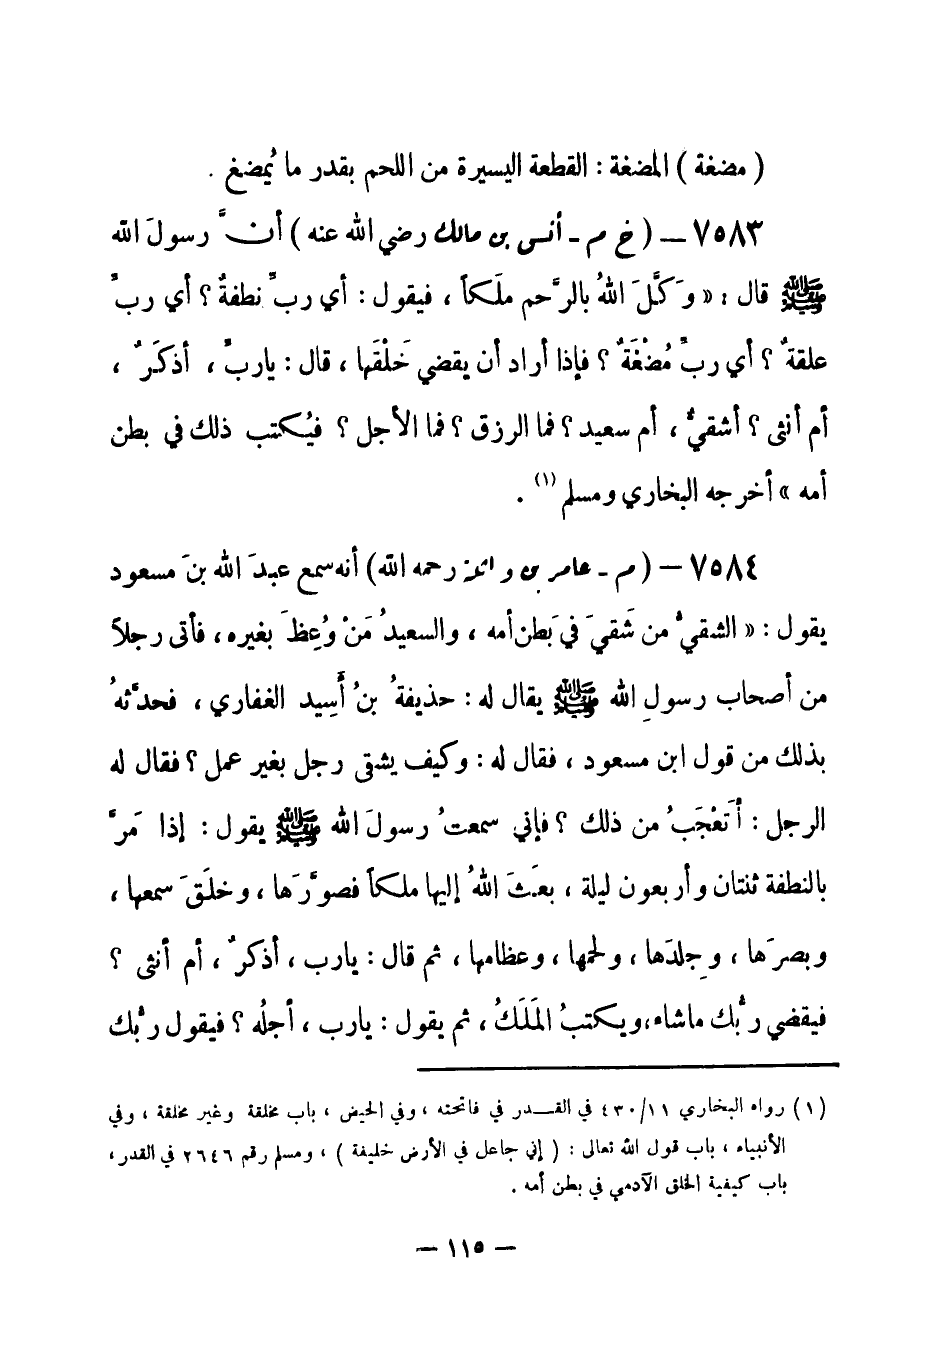 ( مضغة ) المضغة : القطعة اليسيرة من اللحم بقدر ما يُمضغ .
٧٥٨٣ – ( خ م - أنس بن مالك رضي الله عنه ) أنَّ رسولَ الله
ﷺ قال : « وَكَّلَ اللهُ بالرَّحم ملَكاً ، فيقول : أي ربِّ نطفةٌ ؟ أي ربِّ
علقةٌ ؟ أي ربِّ مُضْغَةٌ ؟ فإذا أراد أن يقضي خَلْقَها ، قال : ياربِّ ، أذكَرٌ ،
أم أنثى ؟ أشقيٌّ ، أم سعيد ؟ فما الرزق ؟ فما الأجل ؟ فيُكتب ذلك في بطن
أمه » أخرجه البخاري ومسلم (١) .
٧٥٨٤ – ( م - عامر بن واثلة رحمه الله ) أنه سمع عبدَ الله بنَ مسعود
يقول : « الشقيُّ من شَقيَ في بَطن أمه ، والسعيدُ مَنْ وُعِظَ بغيره ، فأتى رجلاً
من أصحاب رسولِ الله ﷺ يقال له : حذيفةُ بنُ أَسِيد الغفاري ، فحدَّثهُ
بذلك من قول ابن مسعود ، فقال له : وكيف يشقى رجل بغير عمل ؟ فقال له
الرجل : أتَعْجَبُ من ذلك ؟ فإني سمعتُ رسولَ الله ﷺ يقول : إذا مَرَّ
بالنطفة ثنتان وأربعون ليلة ، بعَثَ اللهُ إليها ملكاً فصوَّرَها ، وخلَقَ سمعها ،
وبصرَها ، وجِلدَها ، ولحمها ، وعظامها ، ثم قال : يارب ، أذكرٌ ، أم أنثى ؟
فيقضي ربُّك ماشاء، ويكتبُ المَلَكُ ، ثم يقول : يارب ، أجلُه ؟ فيقول ربُّك
(١) رواه البخاري ٤٣٠/١١ في القدر في فاتحته ، وفي الحيض ، باب مخلقة وغير مخلقة ، وفي
الأنبياء ، باب قول الله تعالى : ( إني جاعل في الأرض خليفة ) ، ومسلم رقم ٢٦٤٦ في القدر ،
باب كيفية الخلق الآدمي في بطن أمه .
– ١١٥ –